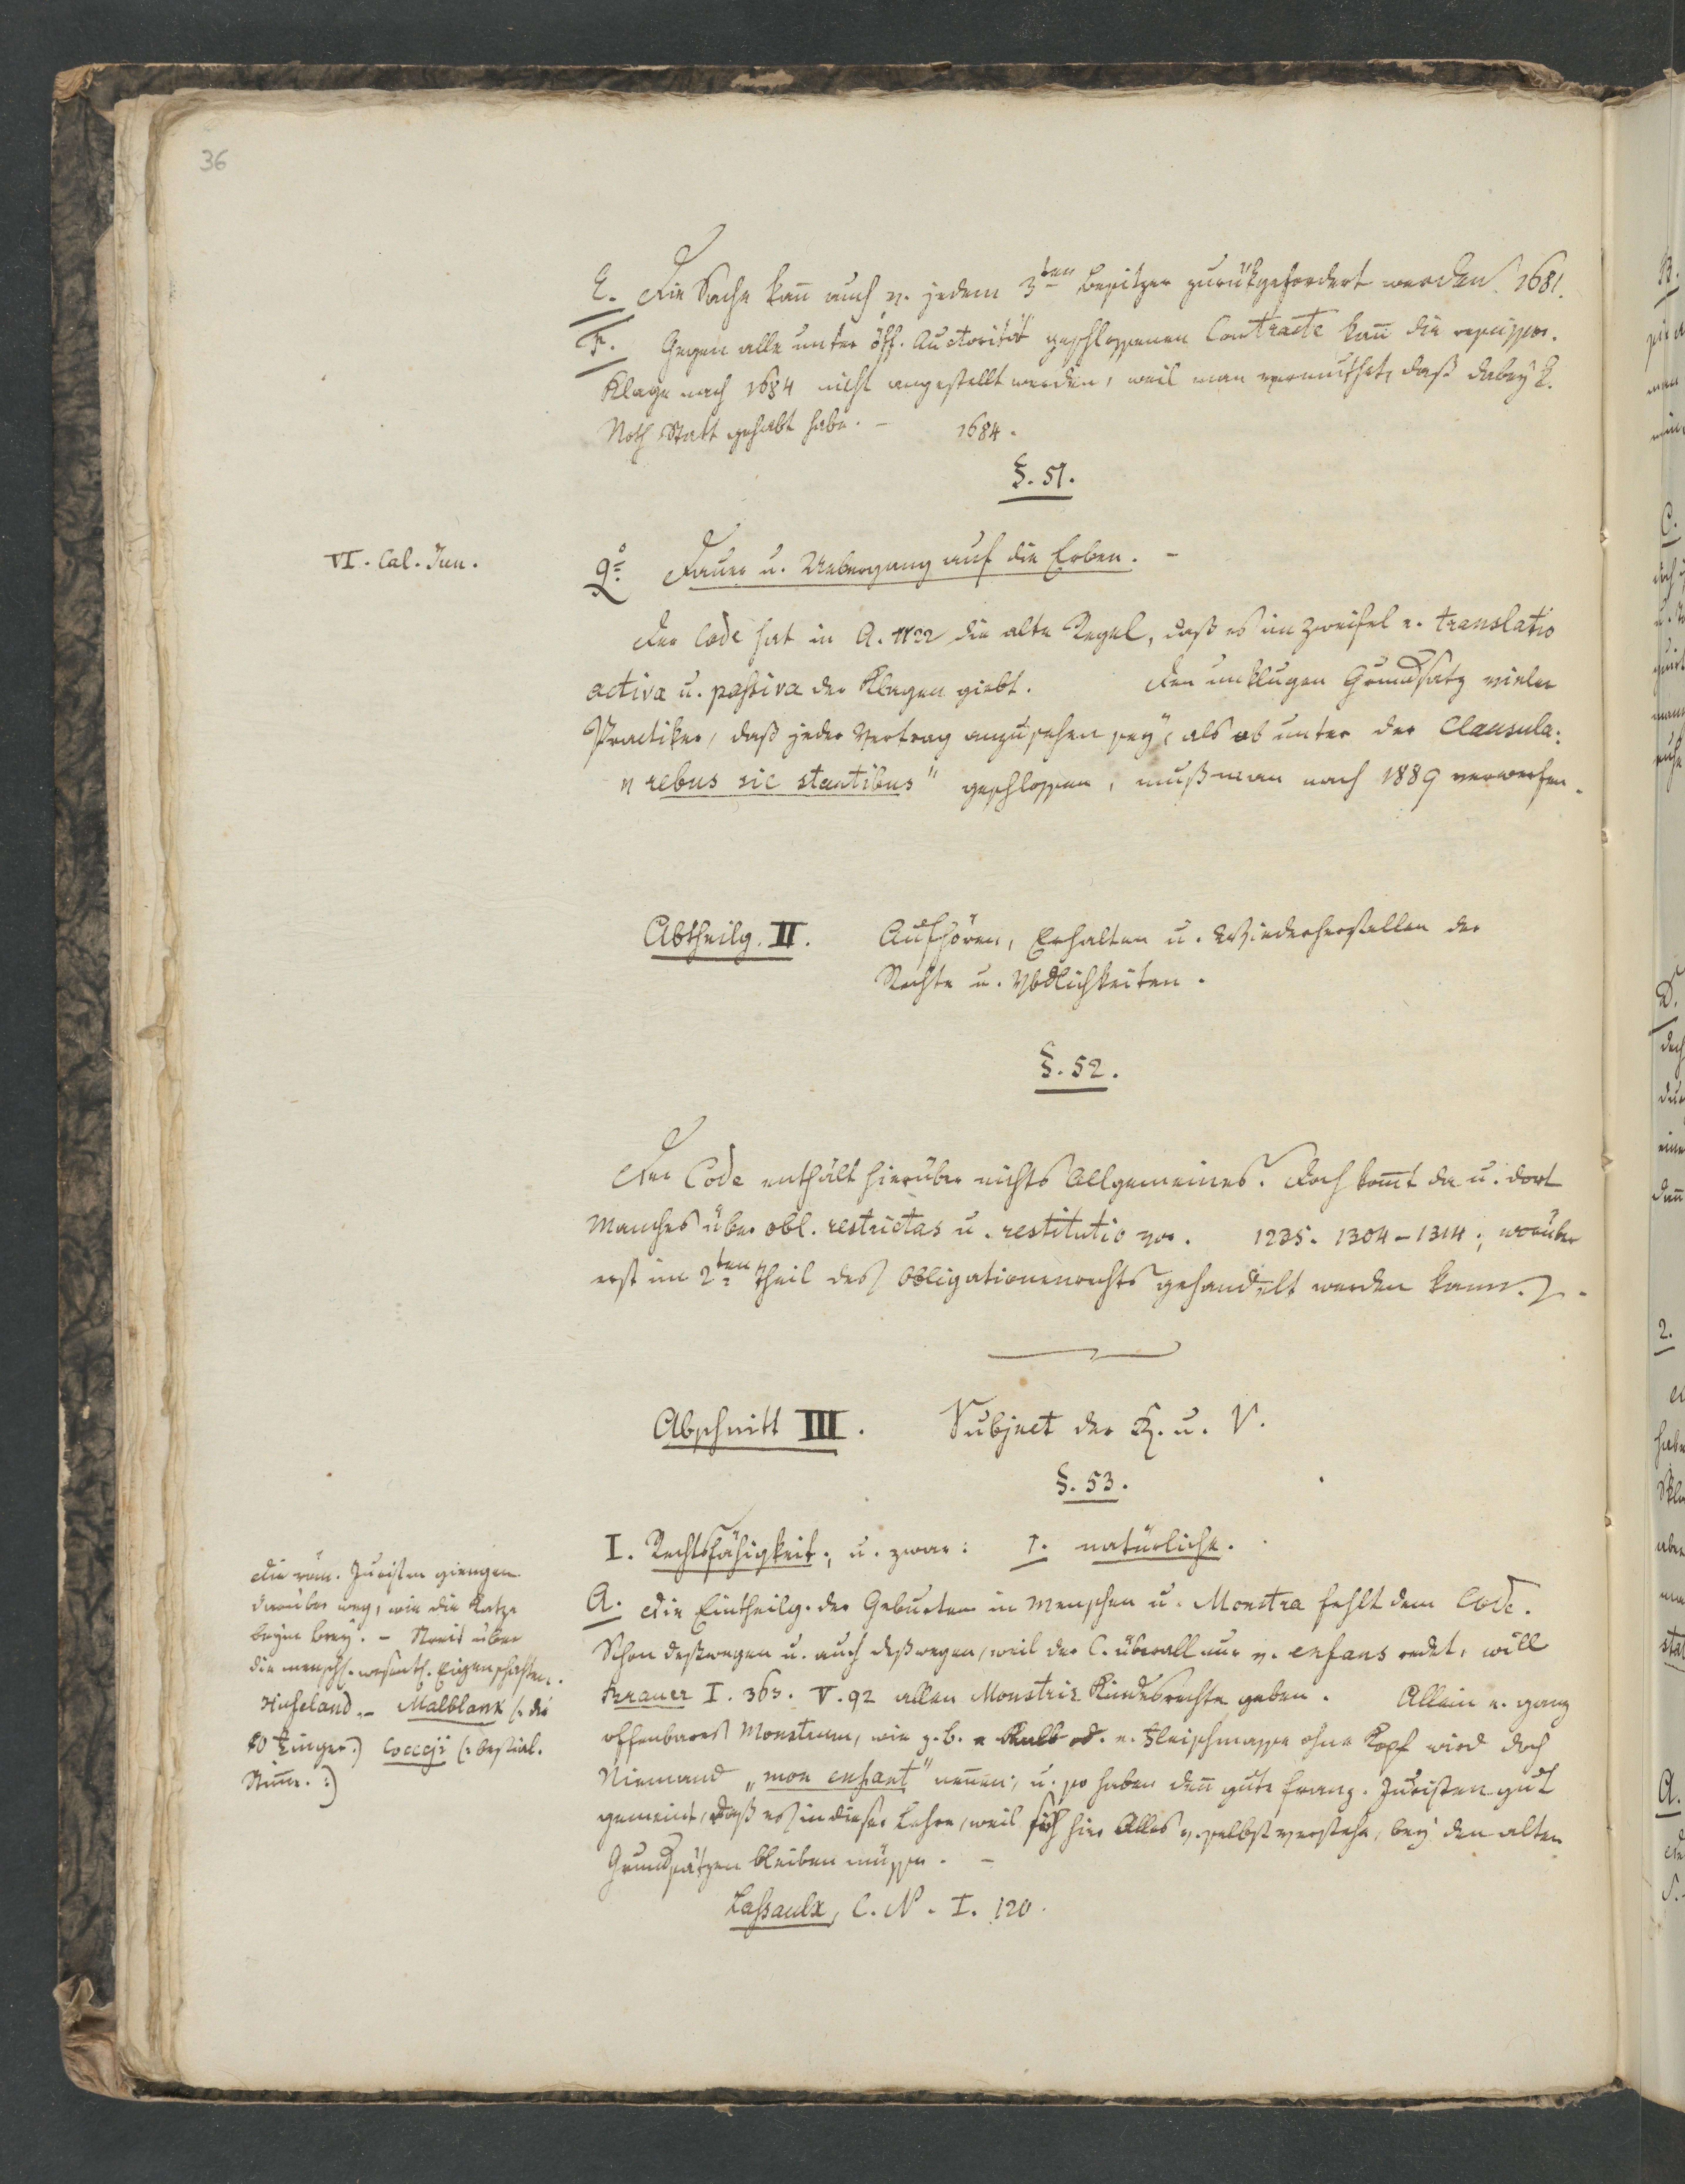 36
E. Die Sache kañ auch v. jedem 3ten Besitzer zurükgefordert werden. 1681.
F. Gegen alle unter öff. Auctorität geschlossenen Contracte kañ die
Klage nach 1684 nicht angestellt werden, weil man vermuthet, daß dabey k.
Noth Statt gehabt habe. – 1684.
§. 51.
VI. Cal. Jun.
9o Dauer u. Uebergang auf die Erben. –
Der Code hat in A. 1122 die alte Regel, daß es im Zweifel e. translatio
activa u. passiva der Klagen giebt. Den unklugen Grundsatz vieler
Practiker, daß jeder Vertrag anzusehen sey, als ob unter der Clausula:
„rebus sic stantibus" geschlossen, muß man nach 1889 verwerfen.
Abtheilg. II. Aufhören, Erhalten u. Wiederherstellen der
Rechte u. Vbdlichkeiten.
§. 52.
Der Code enthält hierüber nichts Allgemeines. Doch kom̃t da u. dort
Manches über obl. restrictas u. restitutio vor. 1235. 1304–1314; worüber
erst im 2ten Theil des Obligationenrechts gehandelt werden kann.
Abschnitt III. Subject der R. u. V.
§. 53.
I. Rechtsfähigkeit; u. zwar: 1. natürliche.
A. Die Eintheilg. der Geburten in Menschen u. Monstra fehlt dem Code.
Schon deßwegen u. auch deßwegen, weil der C. überall nur v. enfans redet, will
Brauer I. 363. V. 92 allen Monstris Kindesrechte geben. Allein e. ganz
offenbares Monstrum, wie z. b. e Kalb od. e. Fleischmasse ohne Kopf wird doch
Niemand „mon enfant" neñen; u. so haben deñ gute franz. Juristen gut
gemeint, daß es in dieser Lehre, weil sich hier Alles v. selbst verstehe, bey den alten
Grundsätzen bleiben müsse. –
Lassaulx, C. N. I. 120.
Die röm. Juristen giengen
darüber weg, wie die Katze
beym Brey. – Streit über
die menschl. wesentl. Eigenschaften.
Hufeland. – Malblank (: die
10 Finger :) Cocceji (: bestial.
Stim̃e. :)